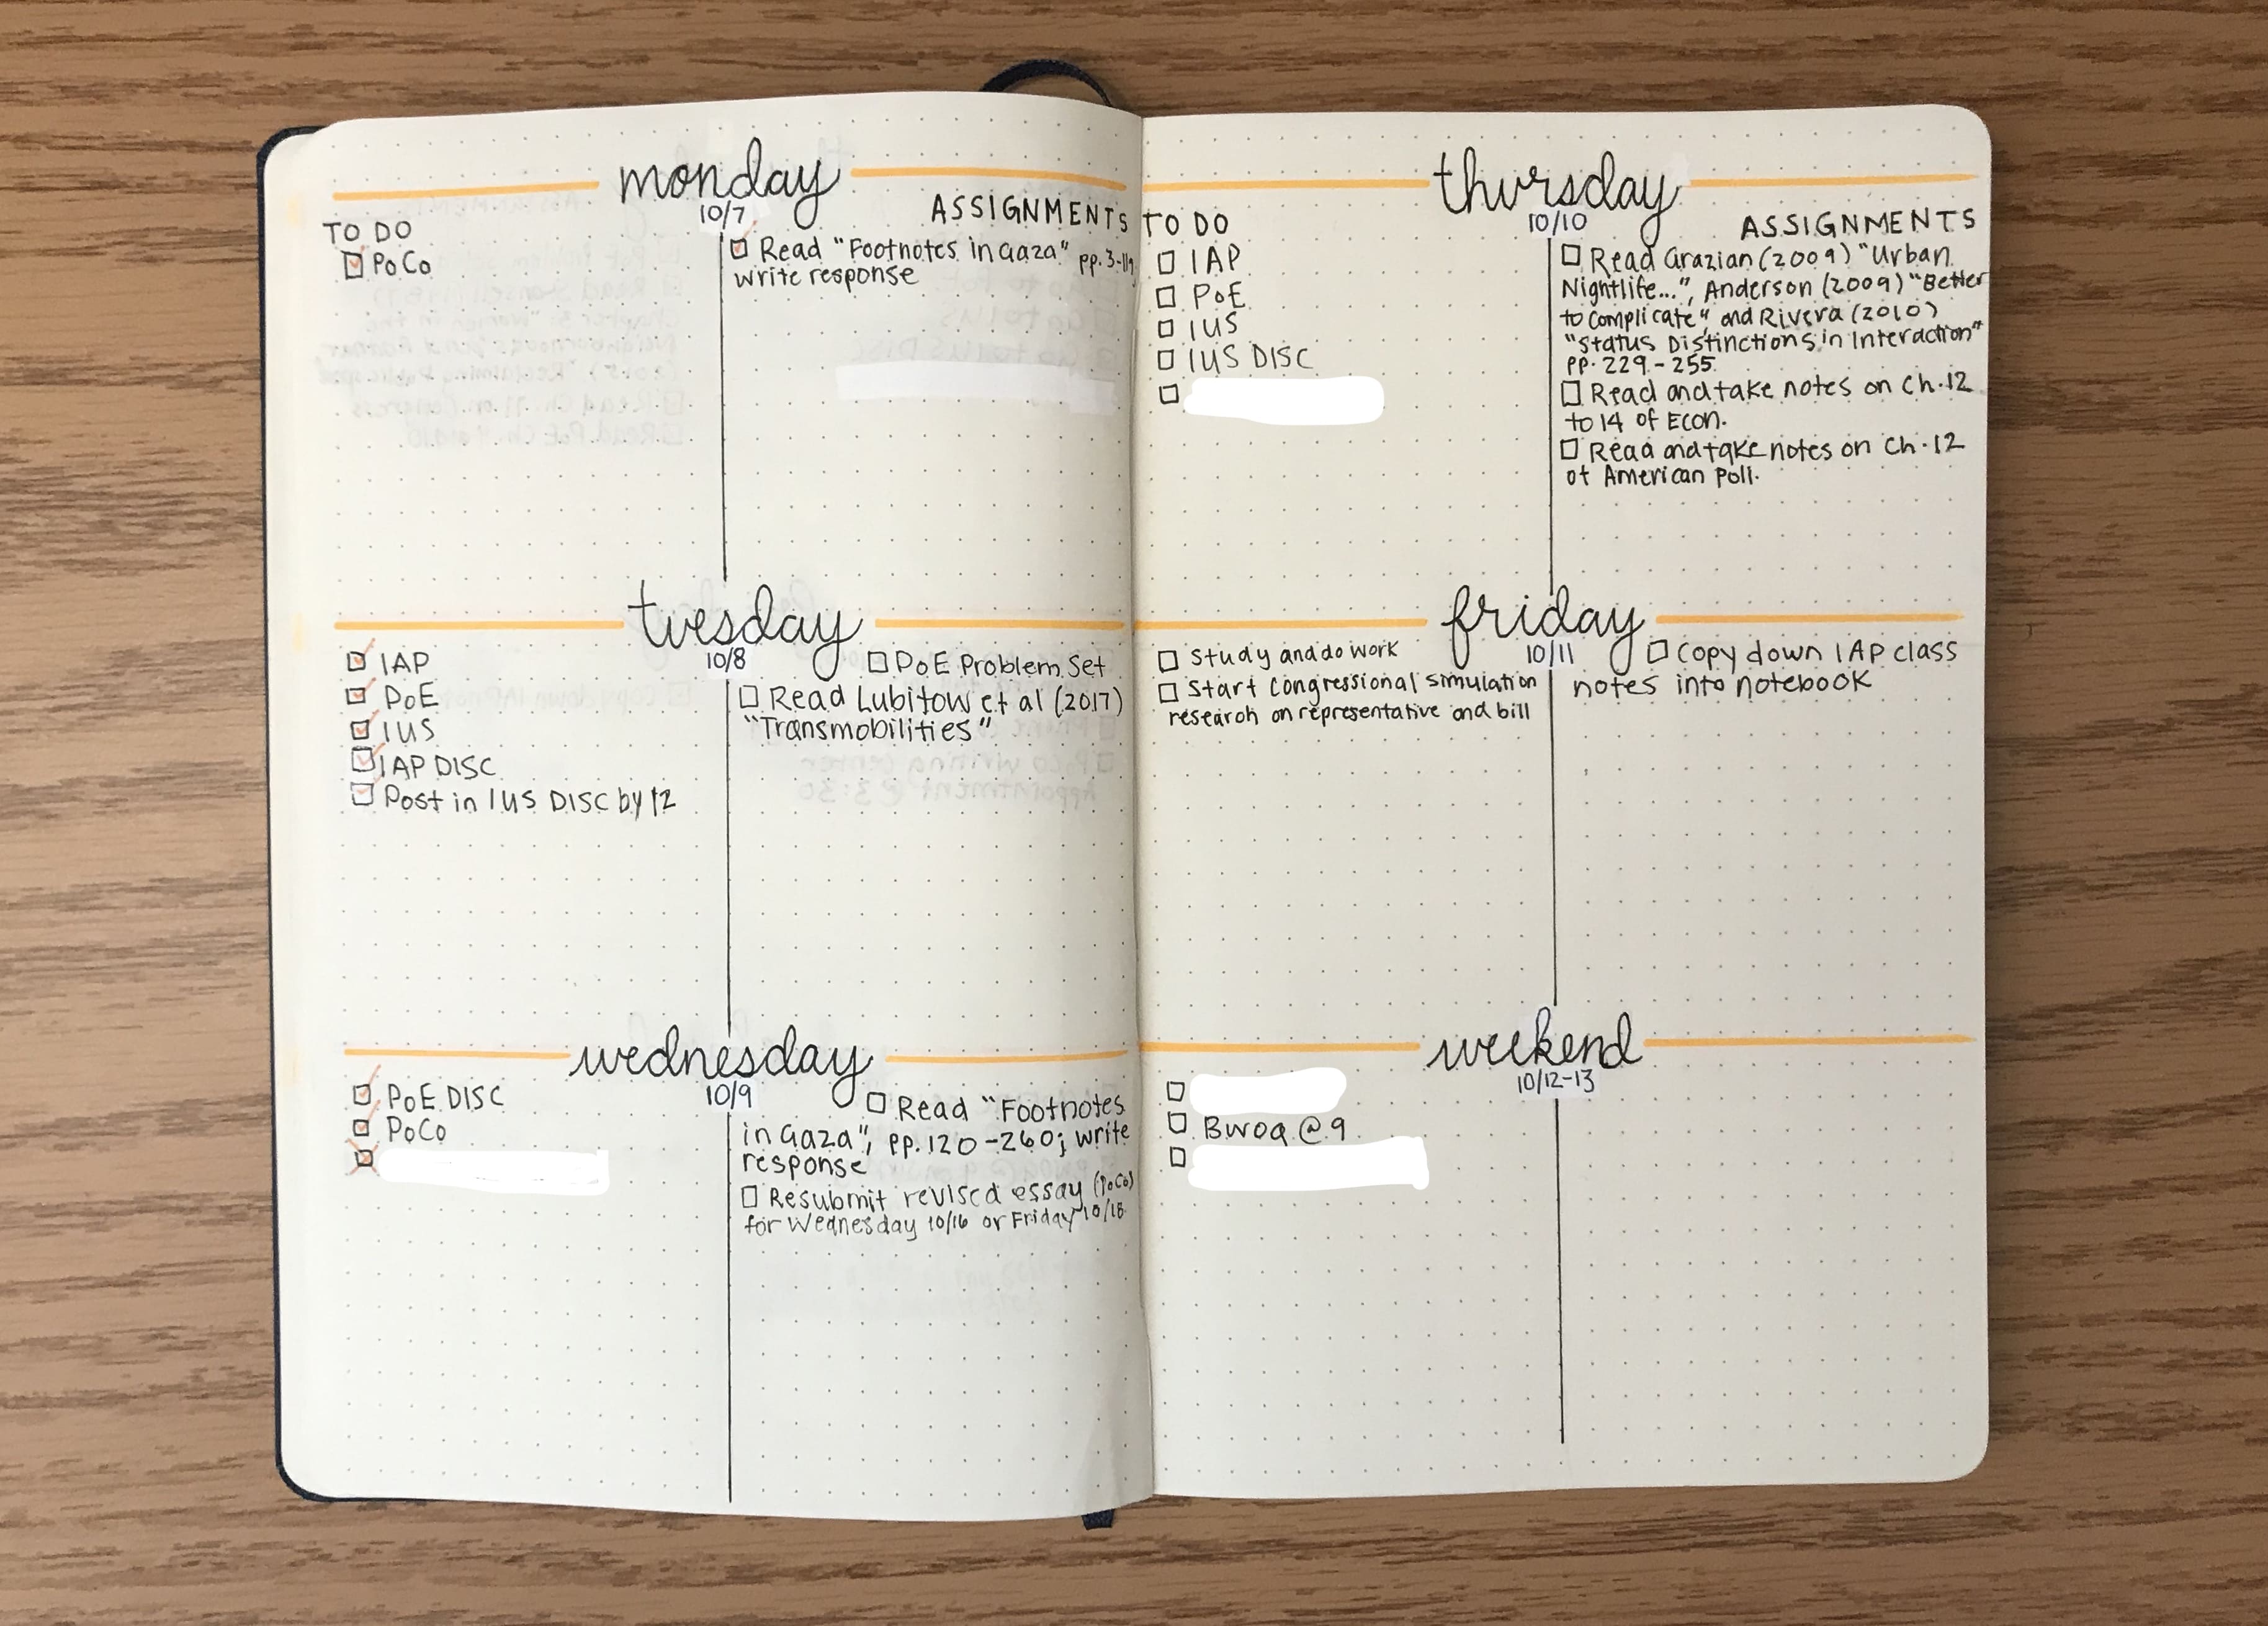 monday
10/7
TO DO
PoCo
ASSIGNMENTS
Read "Footnotes in Gaza" pp. 3-119
write response
tuesday
10/8
IAP
PoE
IUS
IAP DISC
Post in IUS DISC by 12
PoE Problem Set
Read Lubitow et al (2017)
"Transmobilities"
wednesday
10/9
PoE DISC
PoCo
Read "Footnotes
in Gaza", pp. 120-260; write
response
Resubmit revised essay (PoCo)
for Wednesday 10/16 or Friday 10/18
thursday
10/10
TO DO
IAP
PoE
IUS
IUS DISC
ASSIGNMENTS
Read Grazian (2009) "Urban
Nightlife...", Anderson (2009) "Better
to Complicate", and Rivera (2010)
"Status Distinctions in Interaction"
pp. 229-255
Read and take notes on Ch. 12
to 14 of Econ.
Read and take notes on Ch. 12
of American Poli.
friday
10/11
Study and do work
Start Congressional simulation
research on representative and bill
Copy down IAP class
notes into notebook
weekend
10/12-13
Bwog @ 9